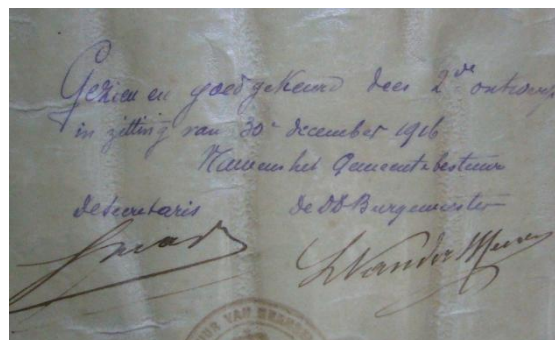 Gezien en goedgekeurd dees 2de ontwerp
in zitting van 30n december 1916
Namens het Gemeentebestuur
de Secretaris de dd Burgemeester
VAN